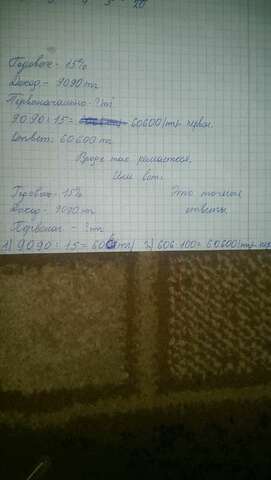 20
Годовое - 15%
Доход - 9090 тг
Первоначально - ? тг
9090 : 15 = 60600 (тг) - первон.
Ответ: 60600 тг.
Вроде так решается.
Или вот:
Годовое - 15% Это точные
Доход - 9090 тг ответы
Первонач - ? тг
1) 9090 : 15 = 606 (тг) 2) 606·100 = 60600 (тг) - пер